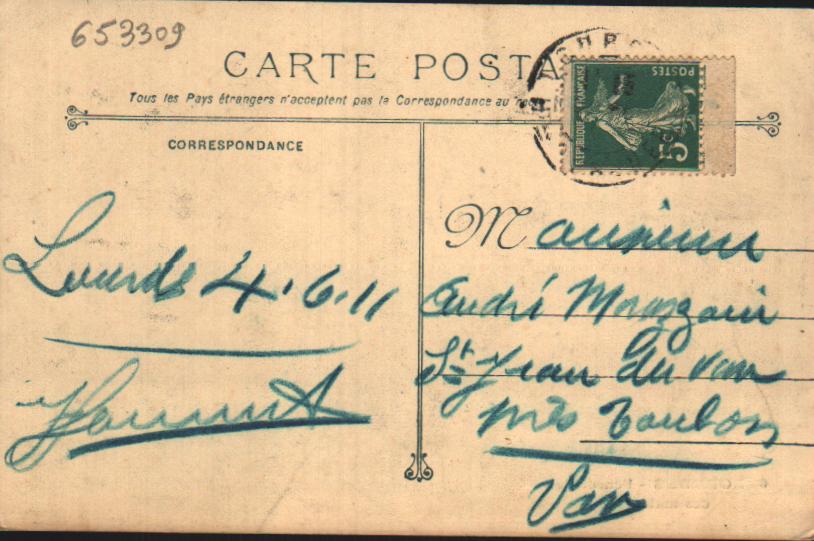 653309
CARTE POSTA
Tous les Pays étrangers n'acceptent pas la Correspondance au
CORRESPONDANCE
REPUBLIQUE FRANÇAISE
POSTES
5c
Lourdes 4.6.11
Monsieur
André
St Jean du Var
près Toulon
Var